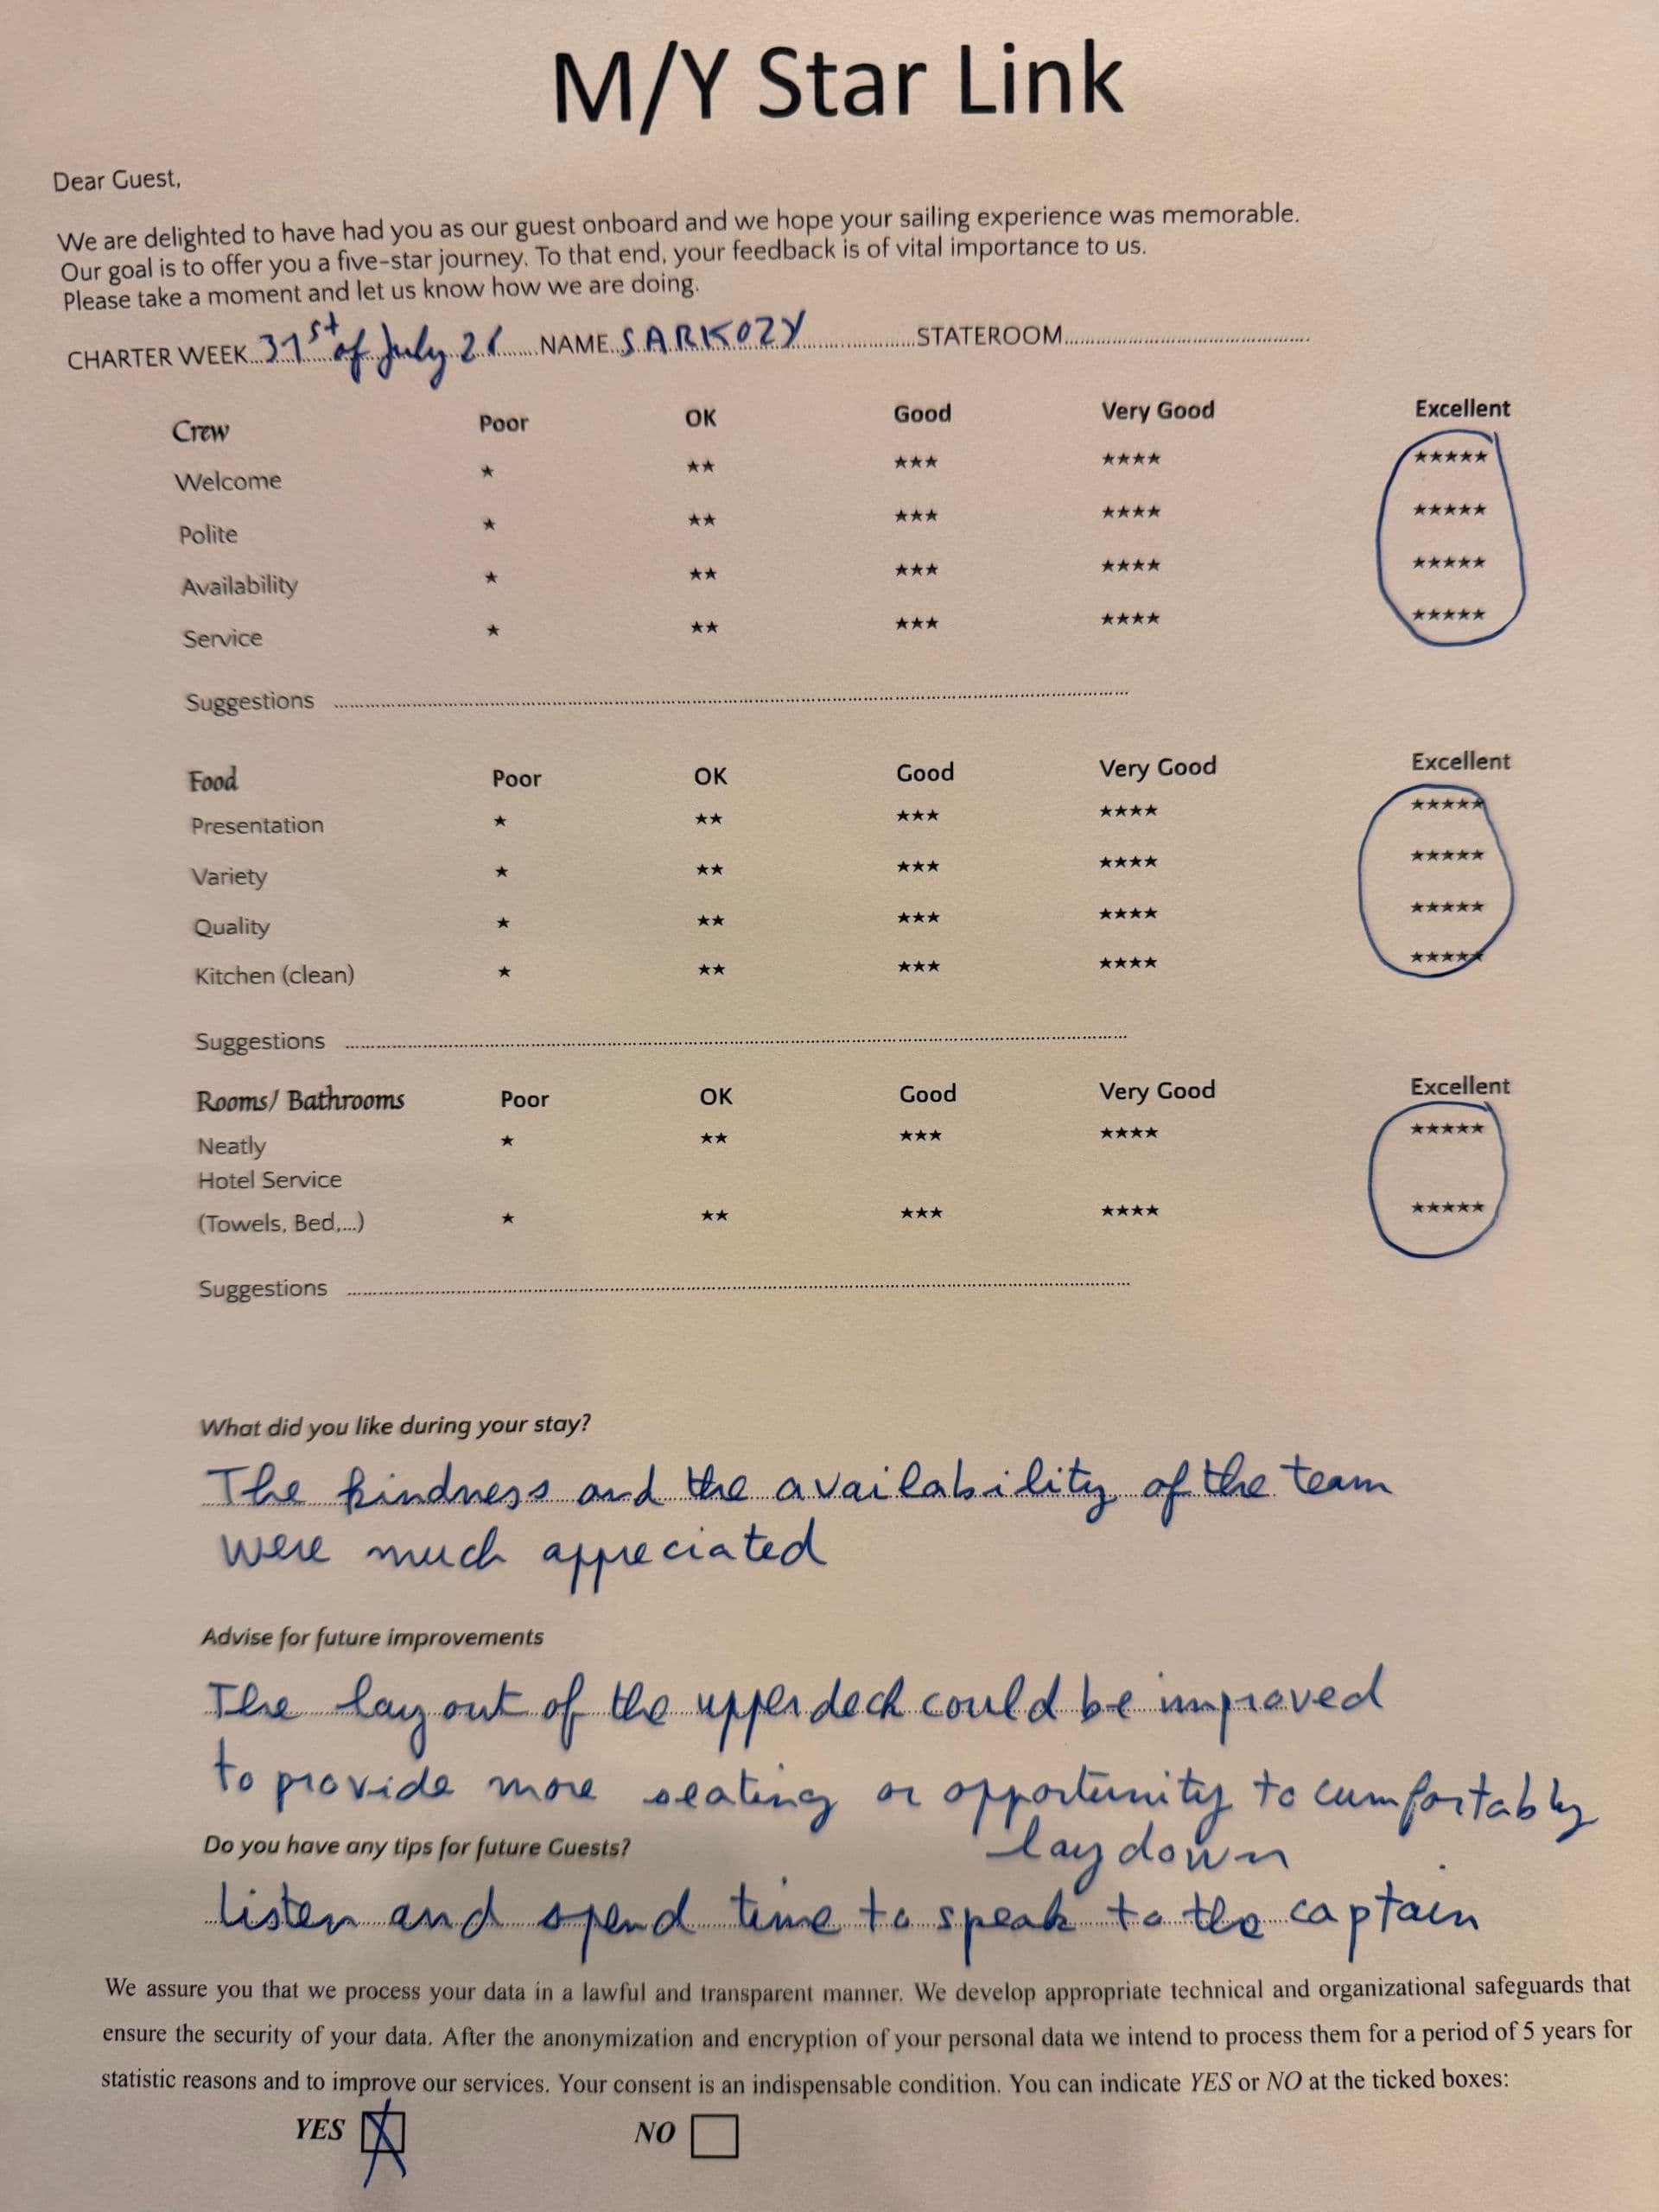 M/Y Star Link
Dear Guest,
We are delighted to have had you as our guest onboard and we hope your sailing experience was memorable.
Our goal is to offer you a five-star journey. To that end, your feedback is of vital importance to us.
Please take a moment and let us know how we are doing.
CHARTER WEEK 31st of July NAME SARKOZY STATEROOM
Crew Poor OK Good Very Good Excellent
Welcome ★ ★★ ★★★ ★★★★ ★★★★★
Polite ★ ★★ ★★★ ★★★★ ★★★★★
Availability ★ ★★ ★★★ ★★★★ ★★★★★
Service ★ ★★ ★★★ ★★★★ ★★★★★
Suggestions
Food Poor OK Good Very Good Excellent
Presentation ★ ★★ ★★★ ★★★★ ★★★★★
Variety ★ ★★ ★★★ ★★★★ ★★★★★
Quality ★ ★★ ★★★ ★★★★ ★★★★★
Kitchen (clean) ★ ★★ ★★★ ★★★★ ★★★★★
Suggestions
Rooms/ Bathrooms Poor OK Good Very Good Excellent
Neatly ★ ★★ ★★★ ★★★★ ★★★★★
Hotel Service
(Towels, Bed,...) ★ ★★ ★★★ ★★★★ ★★★★★
Suggestions
What did you like during your stay?
The kindness and the availability of the team
were much appreciated
Advise for future improvements
The layout of the upper deck could be improved
to provide more seating or opportunity to cumfortably
lay down
Do you have any tips for future Guests?
listen and spend time to speak to the captain
We assure you that we process your data in a lawful and transparent manner. We develop appropriate technical and organizational safeguards that
ensure the security of your data. After the anonymization and encryption of your personal data we intend to process them for a period of 5 years for
statistic reasons and to improve our services. Your consent is an indispensable condition. You can indicate YES or NO at the ticked boxes:
YES NO